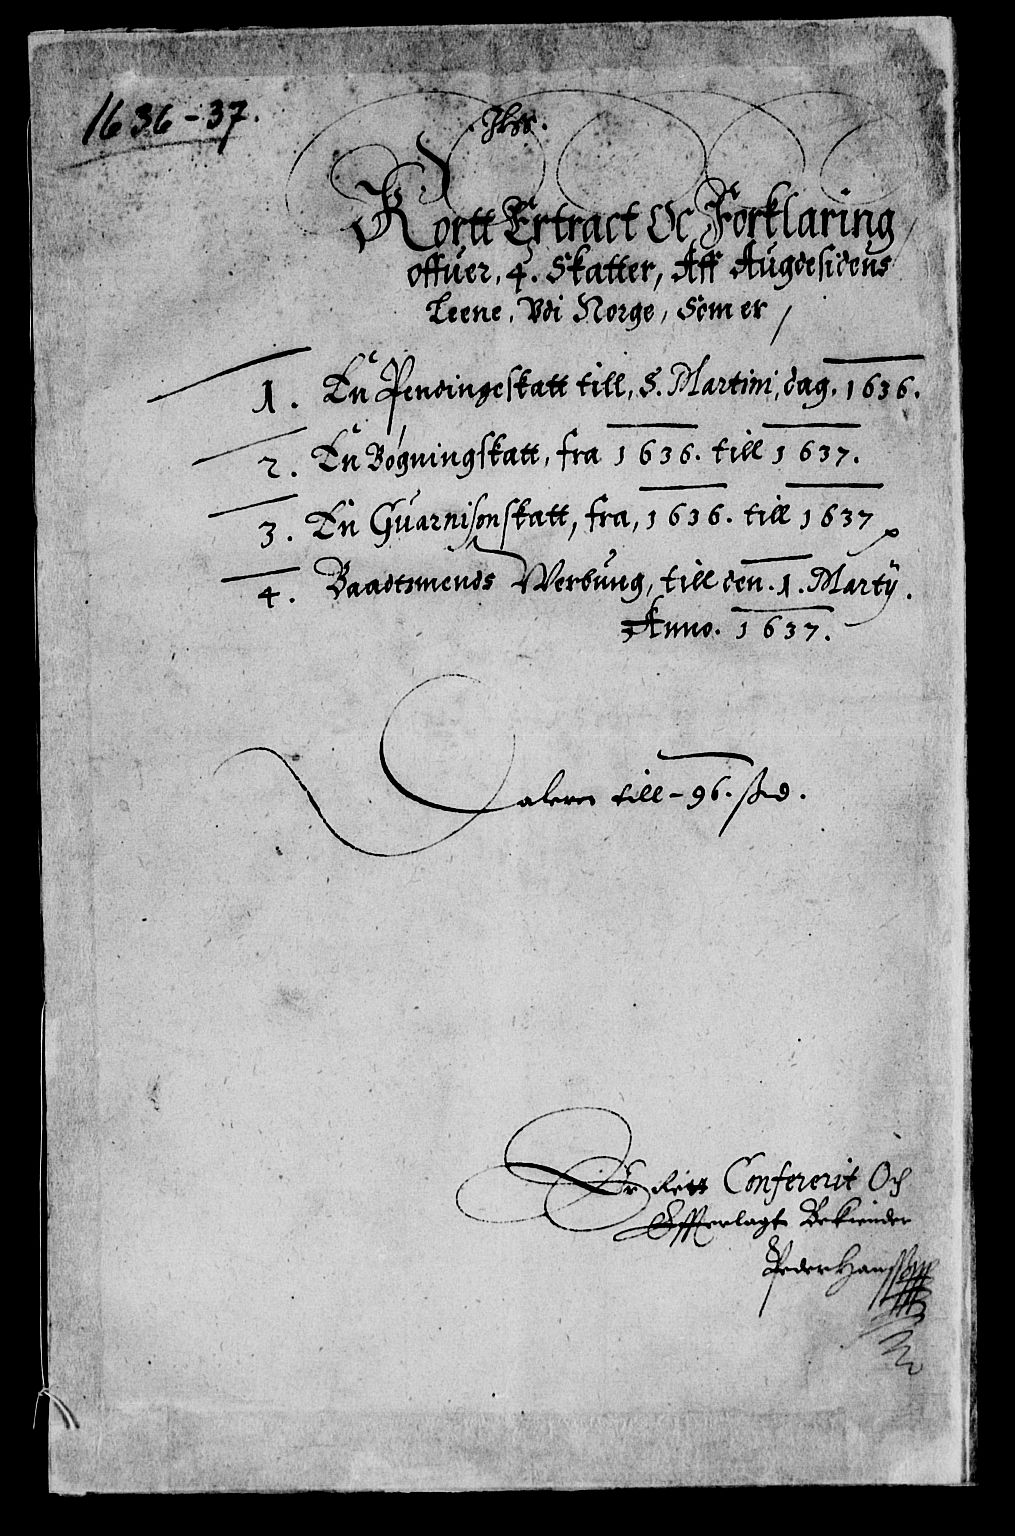 1636-37.
Ihs.
Kortt Extract Oc Forklaring
offuer, 4. Skatter, Aff Augdesidens
Leene, Vdi Norge, Som er /
1. En Pendingeskatt till, S. Martini, dag. 1636.
2. En Bögningskatt, fra 1636. till 1637.
3. En Guarnisonskatt, fra, 1636. till 1637
4. Baadtsmends Werbung, till den. 1. Martÿ.
Anno. 1637.
Daleren till - 96. ß
Er Rett Confererit Och
Offuerlagt Bekiender
Peder Hanssøn